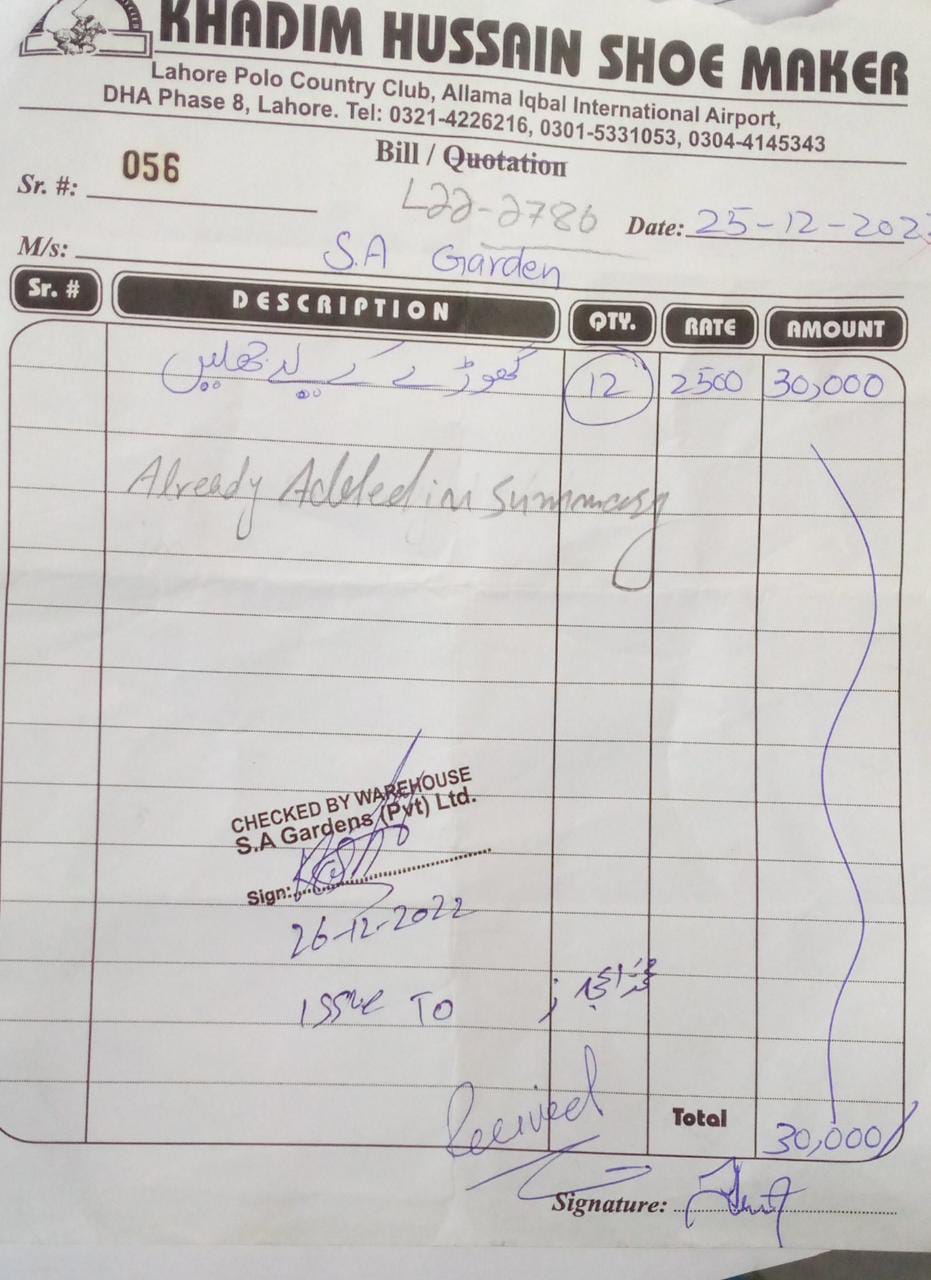 KHADIM HUSSAIN SHOE MAKER
Lahore Polo Country Club, Allama Iqbal International Airport,
DHA Phase 8, Lahore. Tel: 0321-4226216, 0301-5331053, 0304-4145343
Bill / Quotation
Sr. #: 056
L22-2786
Date: 25-12-202
M/s: S.A Garden
Sr. # DESCRIPTION QTY. RATE AMOUNT
گھوڑے کے لیے جھلیں 12 2500 30,000
Already Added in Summary
CHECKED BY WAREHOUSE
S.A Gardens (Pvt) Ltd.
Sign:
26-12-2022
ISSUE TO
Received
Total 30,000/
Signature: